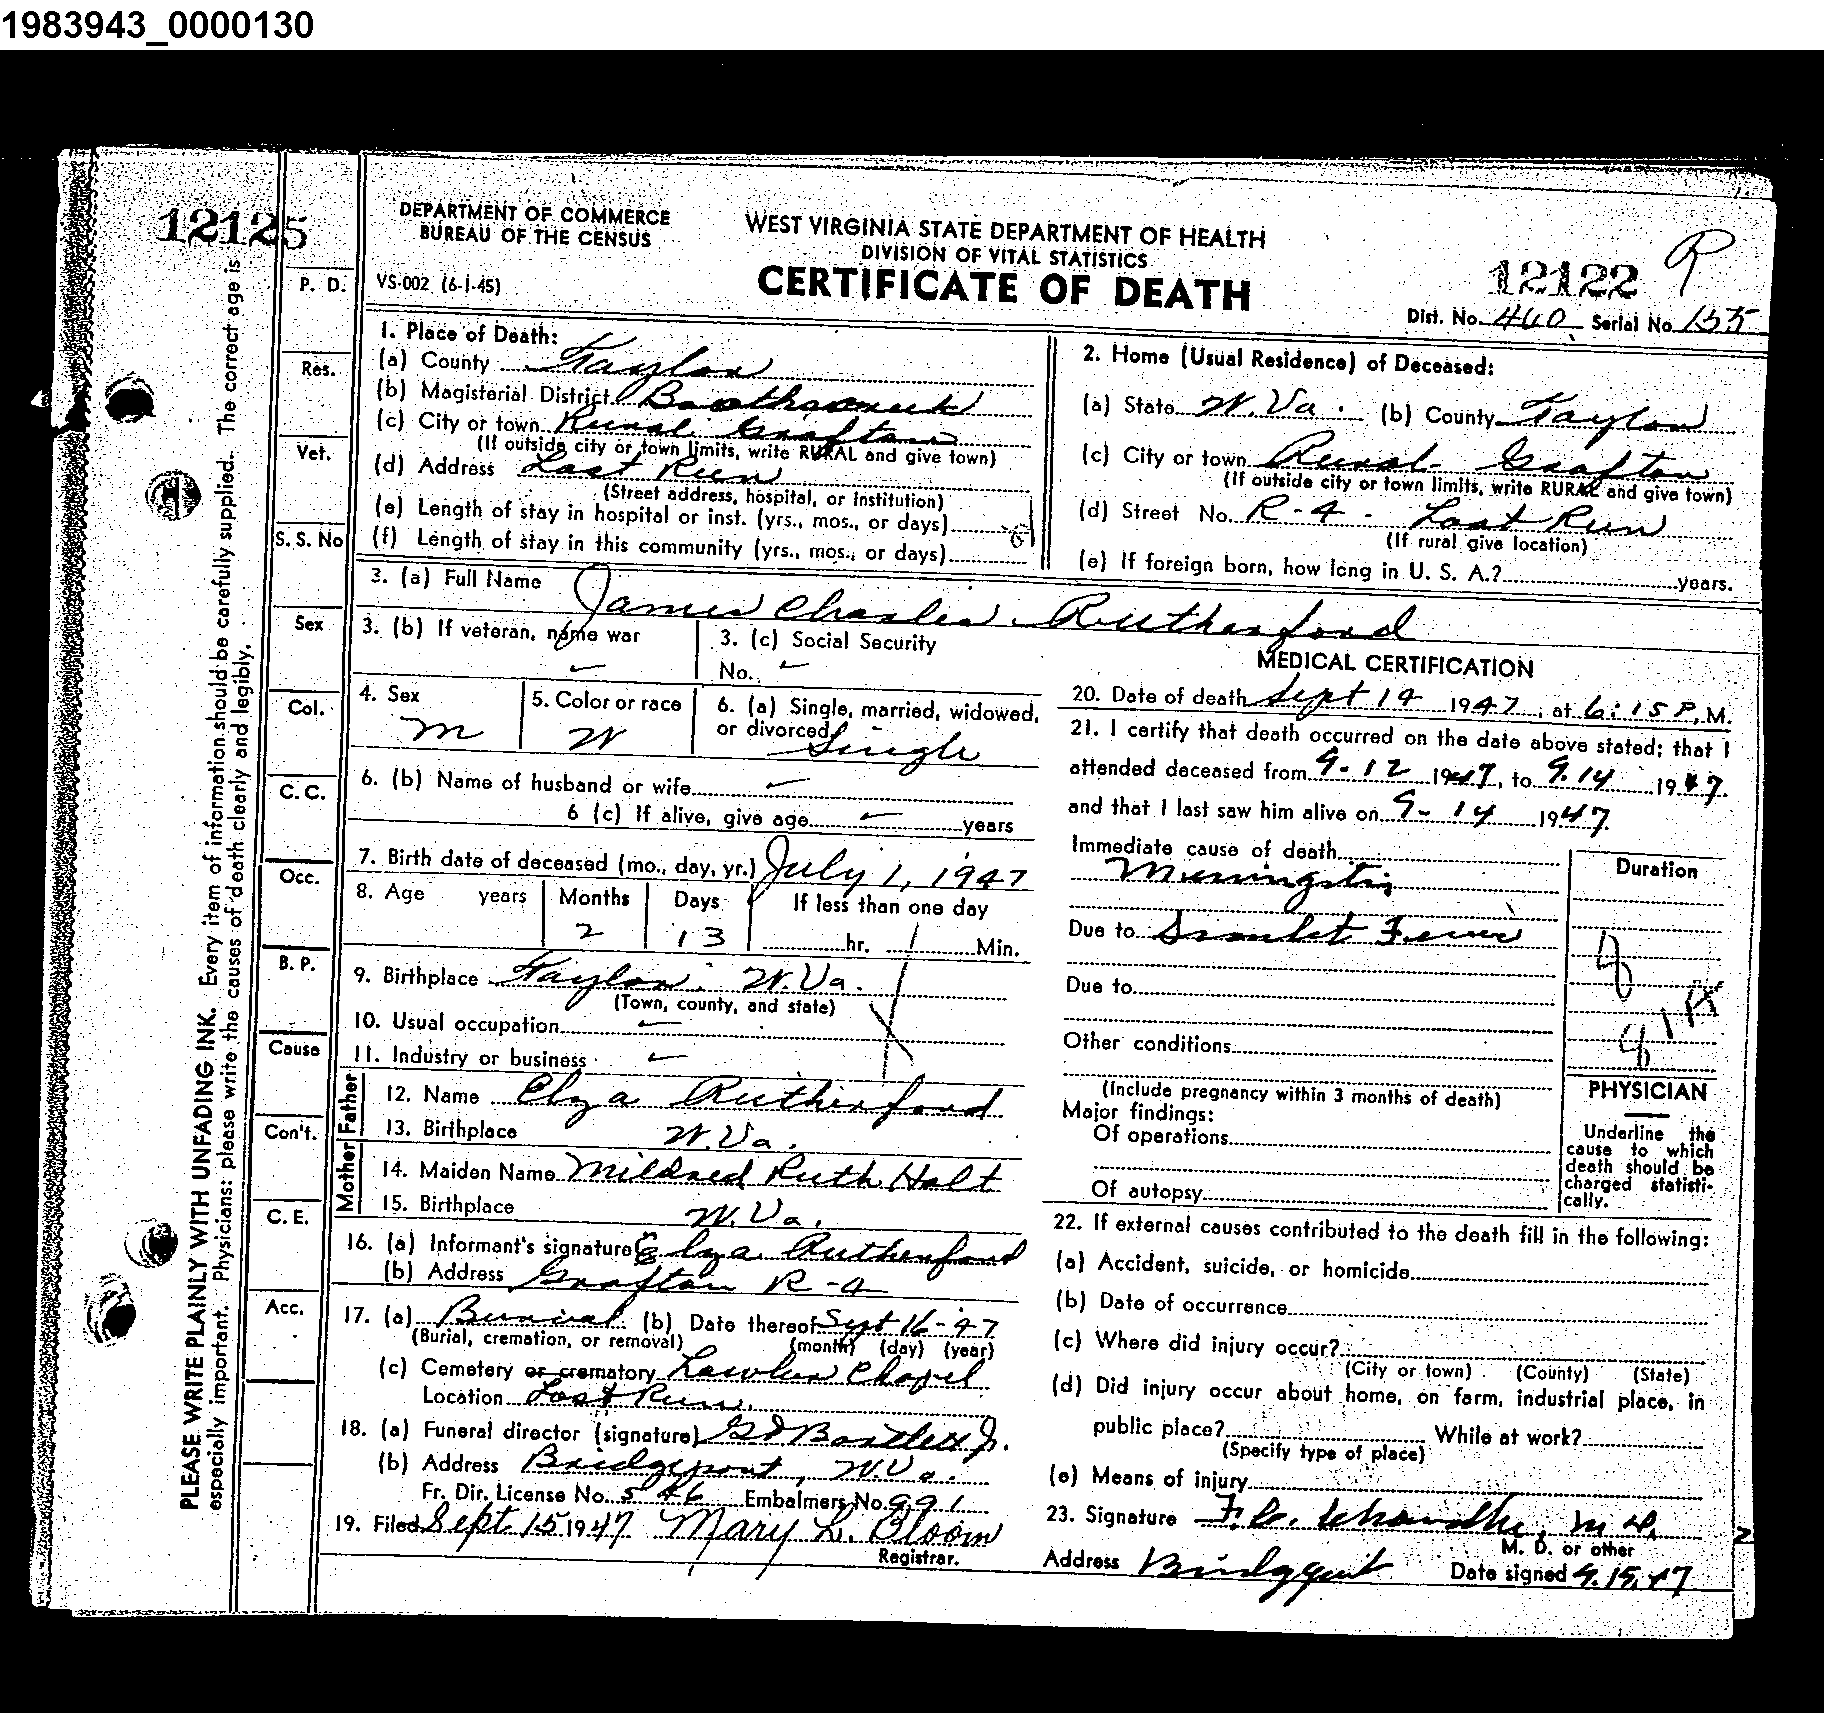 1983943_0000130
12125
DEPARTMENT OF COMMERCE
BUREAU OF THE CENSUS
WEST VIRGINIA STATE DEPARTMENT OF HEALTH
DIVISION OF VITAL STATISTICS
CERTIFICATE OF DEATH
VS-002 (6-1-45)
12122 R
Dist. No. 460 Serial No. 155
PLEASE WRITE PLAINLY WITH UNFADING INK. Every item of information should be carefully supplied. The correct age is
especially important. Physicians: please write the causes of death clearly and legibly.
P. D.
Res.
Vet.
S. S. No
Sex
Col.
C. C.
Occ.
B. P.
Cause
Con't.
C. E.
Acc.
1. Place of Death:
(a) County Taylor
(b) Magisterial District Boothscreek
(c) City or town Rural Grafton
(If outside city or town limits, write RURAL and give town)
(d) Address Lost Run
(Street address, hospital, or institution)
(e) Length of stay in hospital or inst. (yrs., mos., or days)
(f) Length of stay in this community (yrs., mos., or days)
2. Home (Usual Residence) of Deceased:
(a) State W. Va. (b) County Taylor
(c) City or town Rural - Grafton
(If outside city or town limits, write RURAL and give town)
(d) Street No. R-4 - Lost Run
(If rural give location)
(e) If foreign born, how long in U. S. A.? years.
3. (a) Full Name James Charles Rutherford
3. (b) If veteran, name war
3. (c) Social Security
No.
4. Sex M
5. Color or race W
6. (a) Single, married, widowed,
or divorced Single
6. (b) Name of husband or wife
6 (c) If alive, give age years
7. Birth date of deceased (mo., day, yr.) July 1, 1947
8. Age years Months 2 Days 13 If less than one day
hr. Min.
9. Birthplace Taylor. W. Va.
(Town, county, and state)
10. Usual occupation
11. Industry or business
Father
12. Name Elza Rutherford
13. Birthplace W. Va.
Mother
14. Maiden Name Mildred Ruth Holt
15. Birthplace W. Va.
16. (a) Informant's signature Elza Rutherford
(b) Address Grafton R-4
17. (a) Burial (b) Date thereof Sept 16-47
(Burial, cremation, or removal) (month) (day) (year)
(c) Cemetery or crematory Lawler Chapel
Location Lost Run.
18. (a) Funeral director (signature) G D Bartlett Jr.
(b) Address Bridgeport, W. Va.
Fr. Dir. License No. 546 Embalmers No. 991
19. Filed Sept 15 1947 Mary L. Bloom
Registrar.
MEDICAL CERTIFICATION
20. Date of death Sept 14 1947, at 6:15 P. M.
21. I certify that death occurred on the date above stated; that I
attended deceased from 9-12 1947, to 9.14 1947.
and that I last saw him alive on 9-14 1947.
Immediate cause of death
Meningitis
Due to Scarlet Fever
Due to
Other conditions
(Include pregnancy within 3 months of death)
Major findings:
Of operations
Of autopsy
Duration
PHYSICIAN
Underline the
cause to which
death should be
charged statisti-
cally.
22. If external causes contributed to the death fill in the following:
(a) Accident, suicide, or homicide
(b) Date of occurrence
(c) Where did injury occur?
(City or town) (County) (State)
(d) Did injury occur about home, on farm, industrial place, in
public place? While at work?
(Specify type of place)
(e) Means of injury
23. Signature M. D.
M. D. or other
Address Bridgeport Date signed 9.15.47